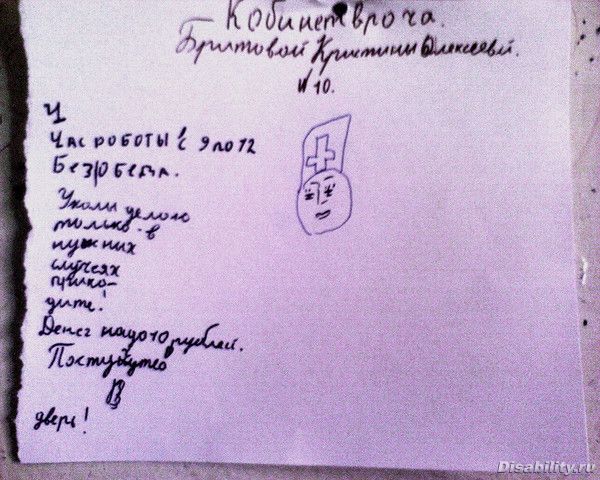 Кобинет вроча.
Бритовой Кристины Олексеевй.
N 10.
Ч
Час роботы! с 9 по 12
Без обеда.
Уколы делою
только в
нужних
случеях
прихо-
дите!
Денег надо 10 рублей.
в
дверь!
Disability.ru